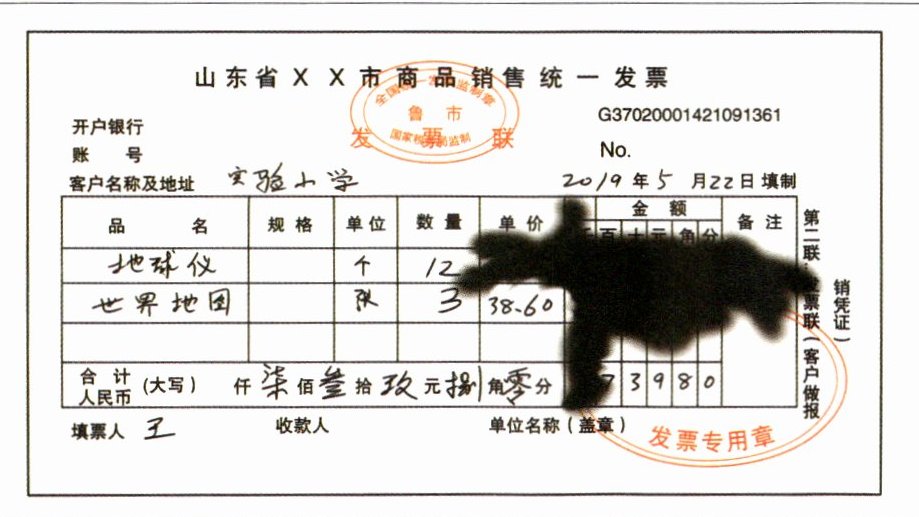 山东省XX市商品销售统一发票
全国统一发票监制章
鲁 市
国家税务局监制
发 票 联
G37020001421091361
开户银行
账 号
No.
客户名称及地址 实验小学 2019年5月22日填制
品 名 规格 单位 数量 单价 金额 备注
百 十 元 角 分
地球仪 个 12
世界地图 张 3 38.60
合计人民币 (大写) 仟柒佰叁拾玖元捌角零分 73980
填票人 王 收款人 单位名称(盖章)
发票专用章
第二联:发票联(客户做报
销凭证)